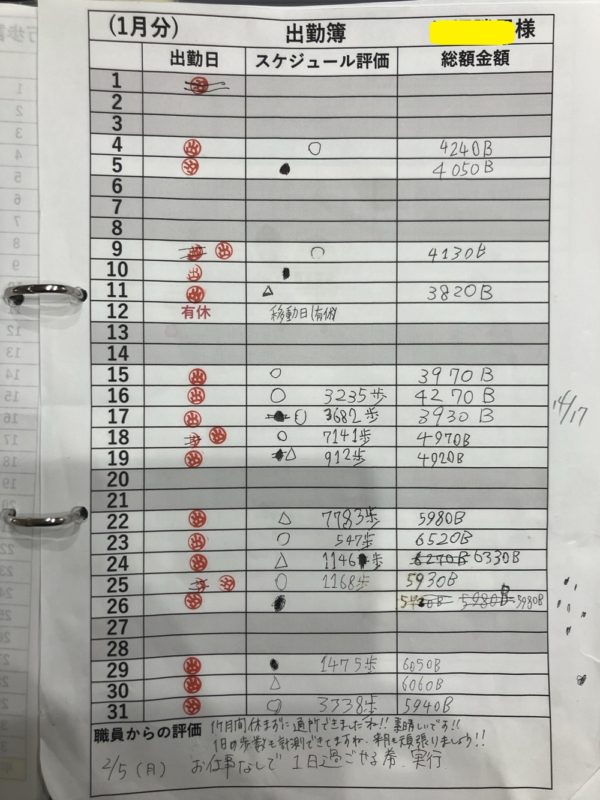 (1月分) 出勤簿 様
出勤日 スケジュール評価 総額金額
1 出
2
3
4 出 ○ 4240B
5 出 ● 4050B
6
7
8
9 出 出 ○ 4130B
10 出 ●
11 出 △ 3820B
12 有休 移動日(有休)
13
14
15 出 ○ 3970B
16 出 ○ 3235歩 4270B
17 出 ○ 3682歩 3930B
18 出 ○ 7141歩 4970B
19 出 △ 912歩 4920B
20
21
22 出 △ 7783歩 5980B
23 出 ○ 547歩 6520B
24 出 △ 1146歩 6270B 6330B
25 出 ○ 1168歩 5930B
26 出 ● 5980B 5980B
27
28
29 出 ● 1475歩 6050B
30 出 △ 6060B
31 出 ○ 3338歩 5940B
14/17
職員からの評価 1ヶ月間休まずに通所できましたね!! 素晴しいです!!
1日の歩数も計測できてますね。来月も頑張りましょう!!
2/5(月) お仕事なしで1日過ごやる常.実行